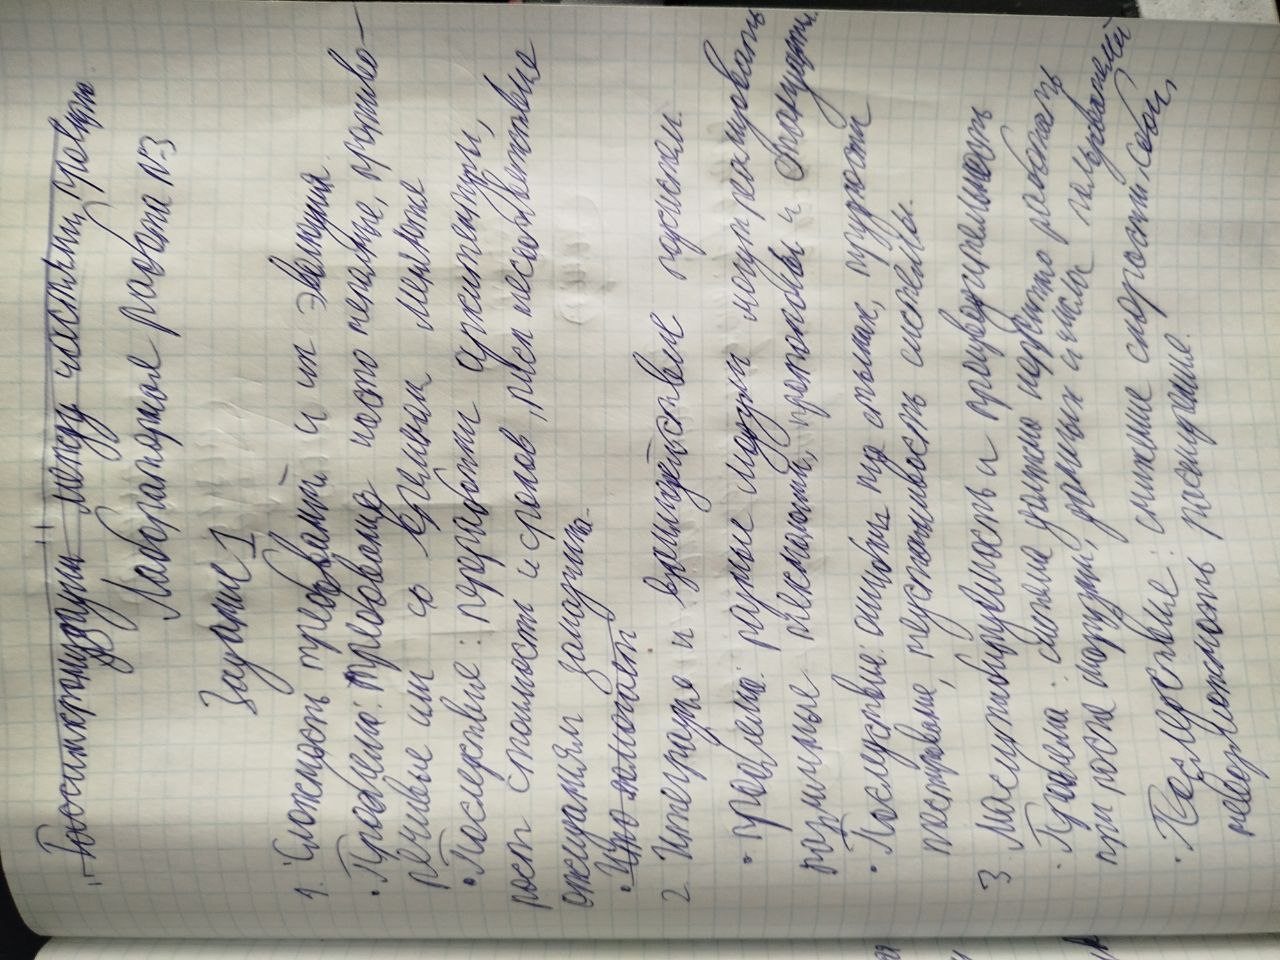 между частями
Лабораторная работа №3
Задание 1
1. Сложность требований и их эволюция.
• Проблема: требования часто неполные, противо-
речивые или со временем меняются
• Последствие: переработки архитектуры,
рост стоимости и сроков, риск несоответствия
ожиданиям заказчика.
• Что помогает
2. Интеграция и взаимодействие подсистем.
• Проблема: разные модули могут использовать
различные технологии, протоколы и стандарты.
• Последствия: ошибки на стыках, трудности
тестирования, неустойчивость системы.
3. Масштабируемость и производительность
• Проблема: система должна корректно работать
при росте нагрузки, данных и числа пользователей
• Последствие: снижение скорости, сбои,
невозможность расширения.